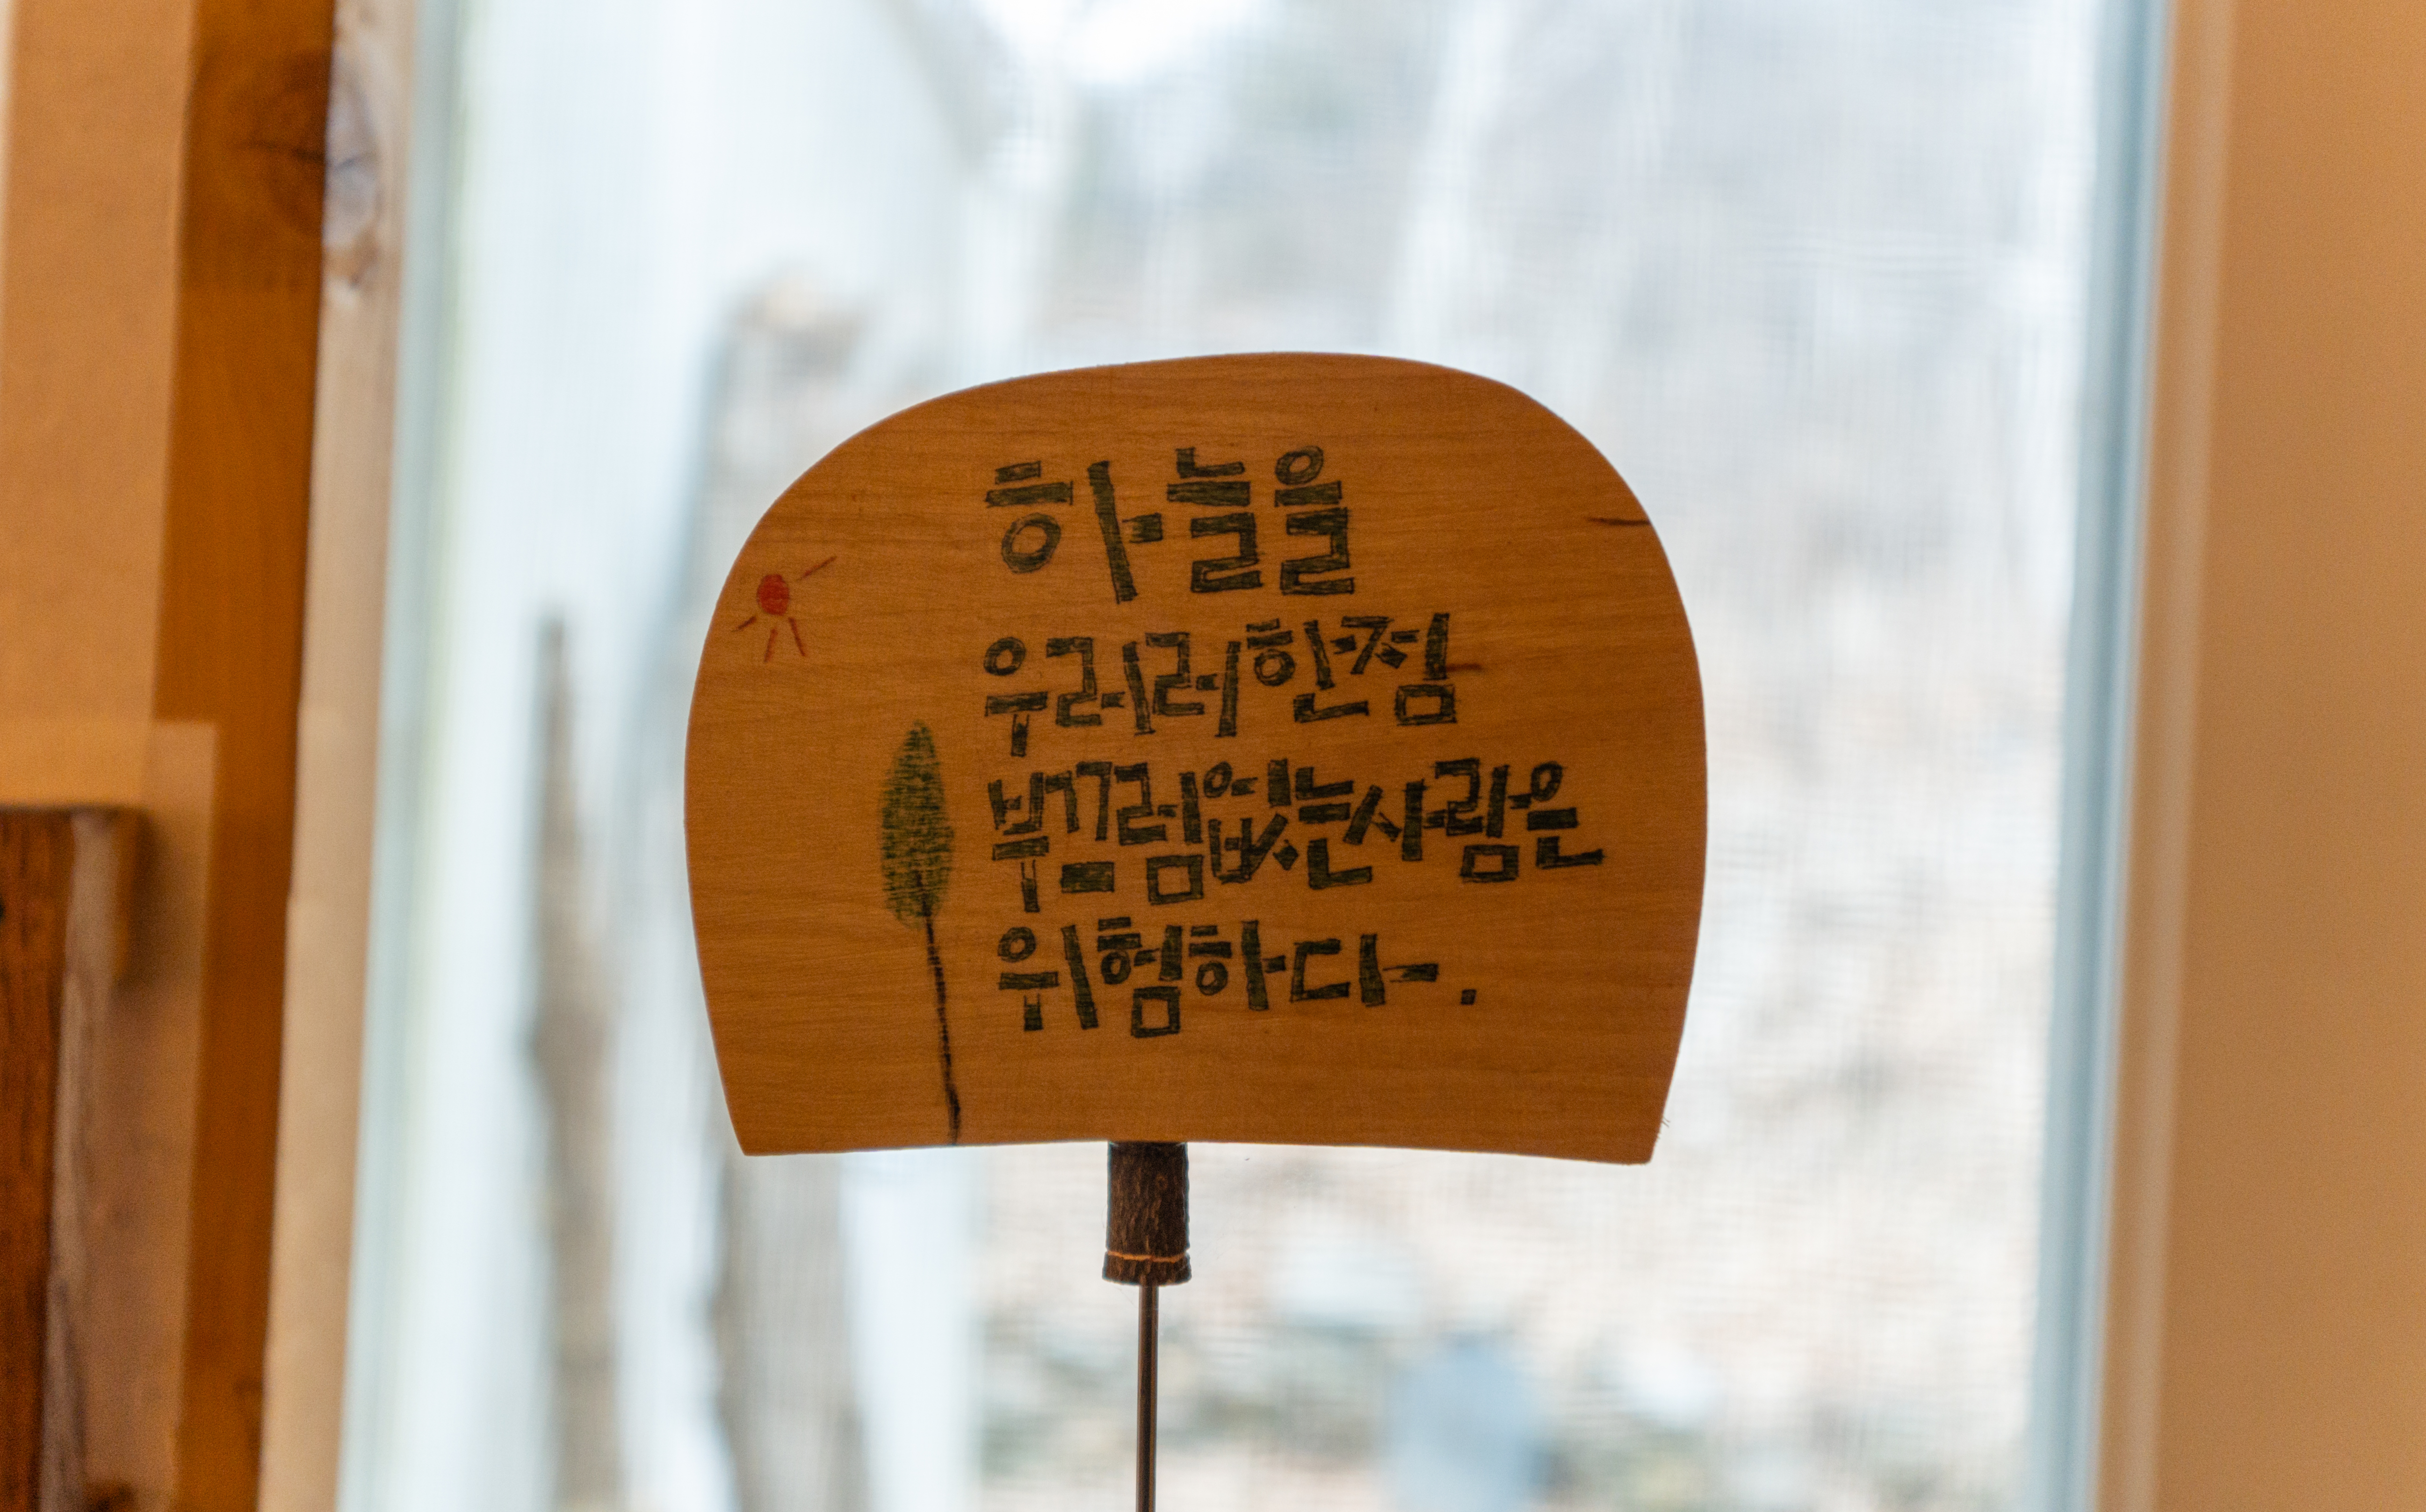 하늘을
우러러 한점
부끄럼없는 사람은
위험하다.